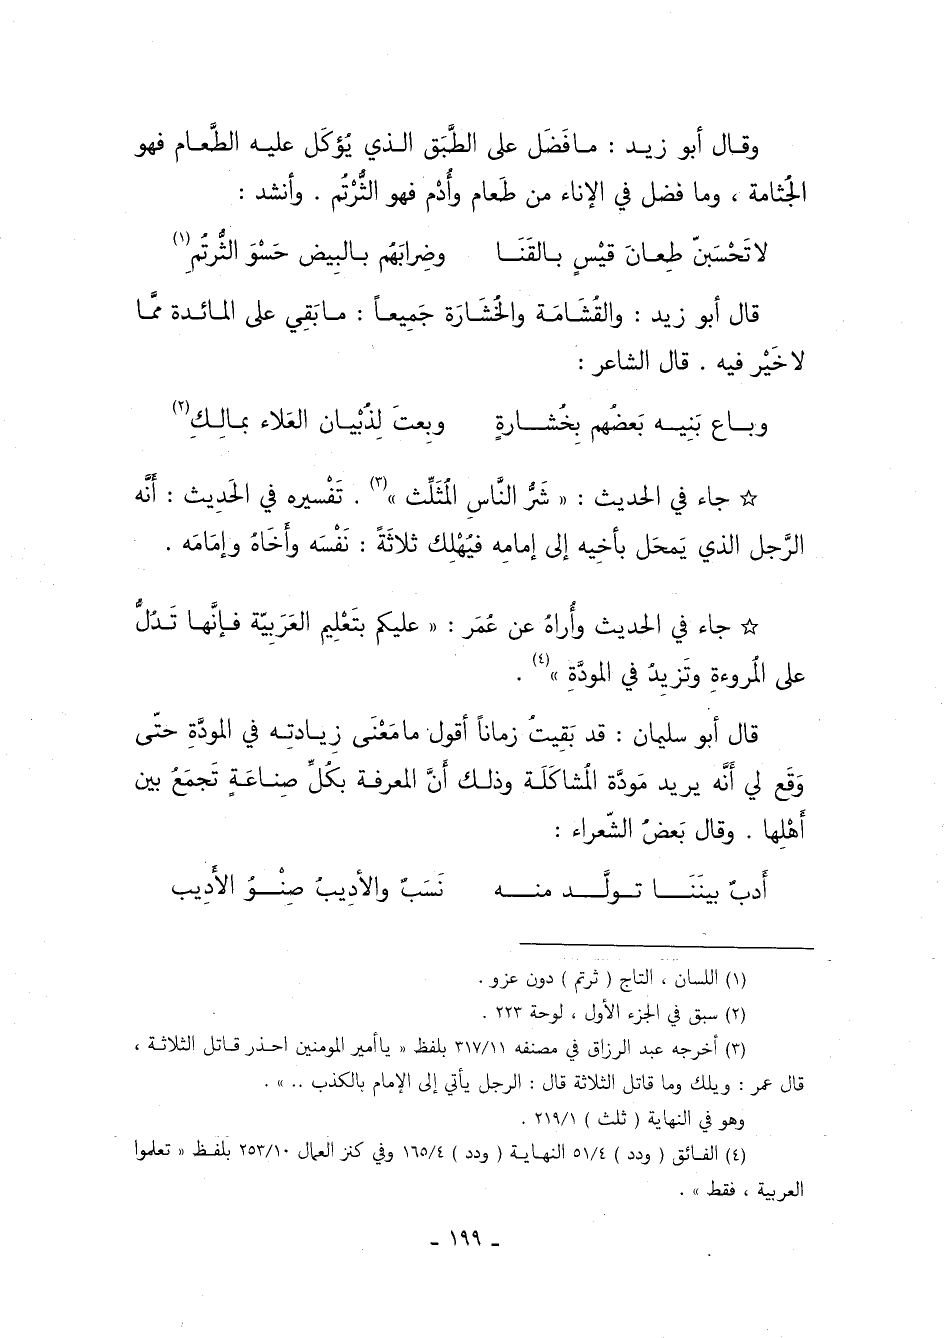 وقال أبو زيد : مافَضَل على الطَّبَق الذي يُؤكَل عليه الطَّعام فهو
الجُثامة ، وما فضل في الإناء من طَعام وأُدْم فهو الثُّرْتُم . وأنشد :
لاتَحْسَبَنّ طِعانَ قيْسٍ بالقَنَا وضِرابَهُم بالبِيض حَسْوَ الثُّرتُمِ(١)
قال أبو زيد : والقُشَامَة والخُشَارَة جَميعاً : مابَقِي على المائدة ممَّا
لاخَيْر فيه . قال الشاعر :
وباع بَنِيه بَعضُهم بِخُشارةٍ وبِعتَ لِذُبْيان العَلاء بمالِكِ(٢)
☆ جاء في الحديث : « شَرُّ النَّاسِ المُثَلِّث »(٣) . تَفْسيره في الحَديث : أَنَّه
الرَّجل الذي يَمحَل بأخيه إلى إمامِه فيُهْلِك ثلاثَةً : نَفْسَه وأَخَاهُ وإمَامَه .
☆ جاء في الحديث وأُراهُ عن عُمَر : « عليكم بتَعْلِيم العَرَبيّة فإنَّها تَدُلُّ
على المُروءةِ وتَزِيدُ في المودَّةِ »(٤) .
قال أبو سليمان : قد بَقِيتُ زماناً أقول مامَعْنَى زيادتِه في المودَّةِ حتّى
وَقَع لي أَنَّه يريد مَودَّة المُشاكَلَة وذلك أَنَّ المعرفة بكُلِّ صِناعَةٍ تَجمَعُ بين
أَهْلِها . وقال بَعضُ الشّعراء :
أَدبٌ بينَنَا تولَّد منه نَسَبٌ والأَديبُ صِنْوُ الأَدِيبِ
(١) اللسان ، التاج ( ثرتم ) دون عزو .
(٢) سبق في الجزء الأول ، لوحة ٢٢٣ .
(٣) أخرجه عبد الرزاق في مصنفه ٣١٧/١١ بلفظ « ياأمير المومنين احذر قاتل الثلاثة ،
قال عمر : ويلك وما قاتل الثلاثة قال : الرجل يأتي إلى الإمام بالكذب .. » .
وهو في النهاية ( ثلث ) ٢١٩/١ .
(٤) الفائق ( ودد ) ٥١/٤ النهاية ( ودد ) ١٦٥/٤ وفي كنز العمال ٢٥٣/١٠ بلفظ « تعلموا
العربية ، فقط » .
ـ ١٩٩ ـ